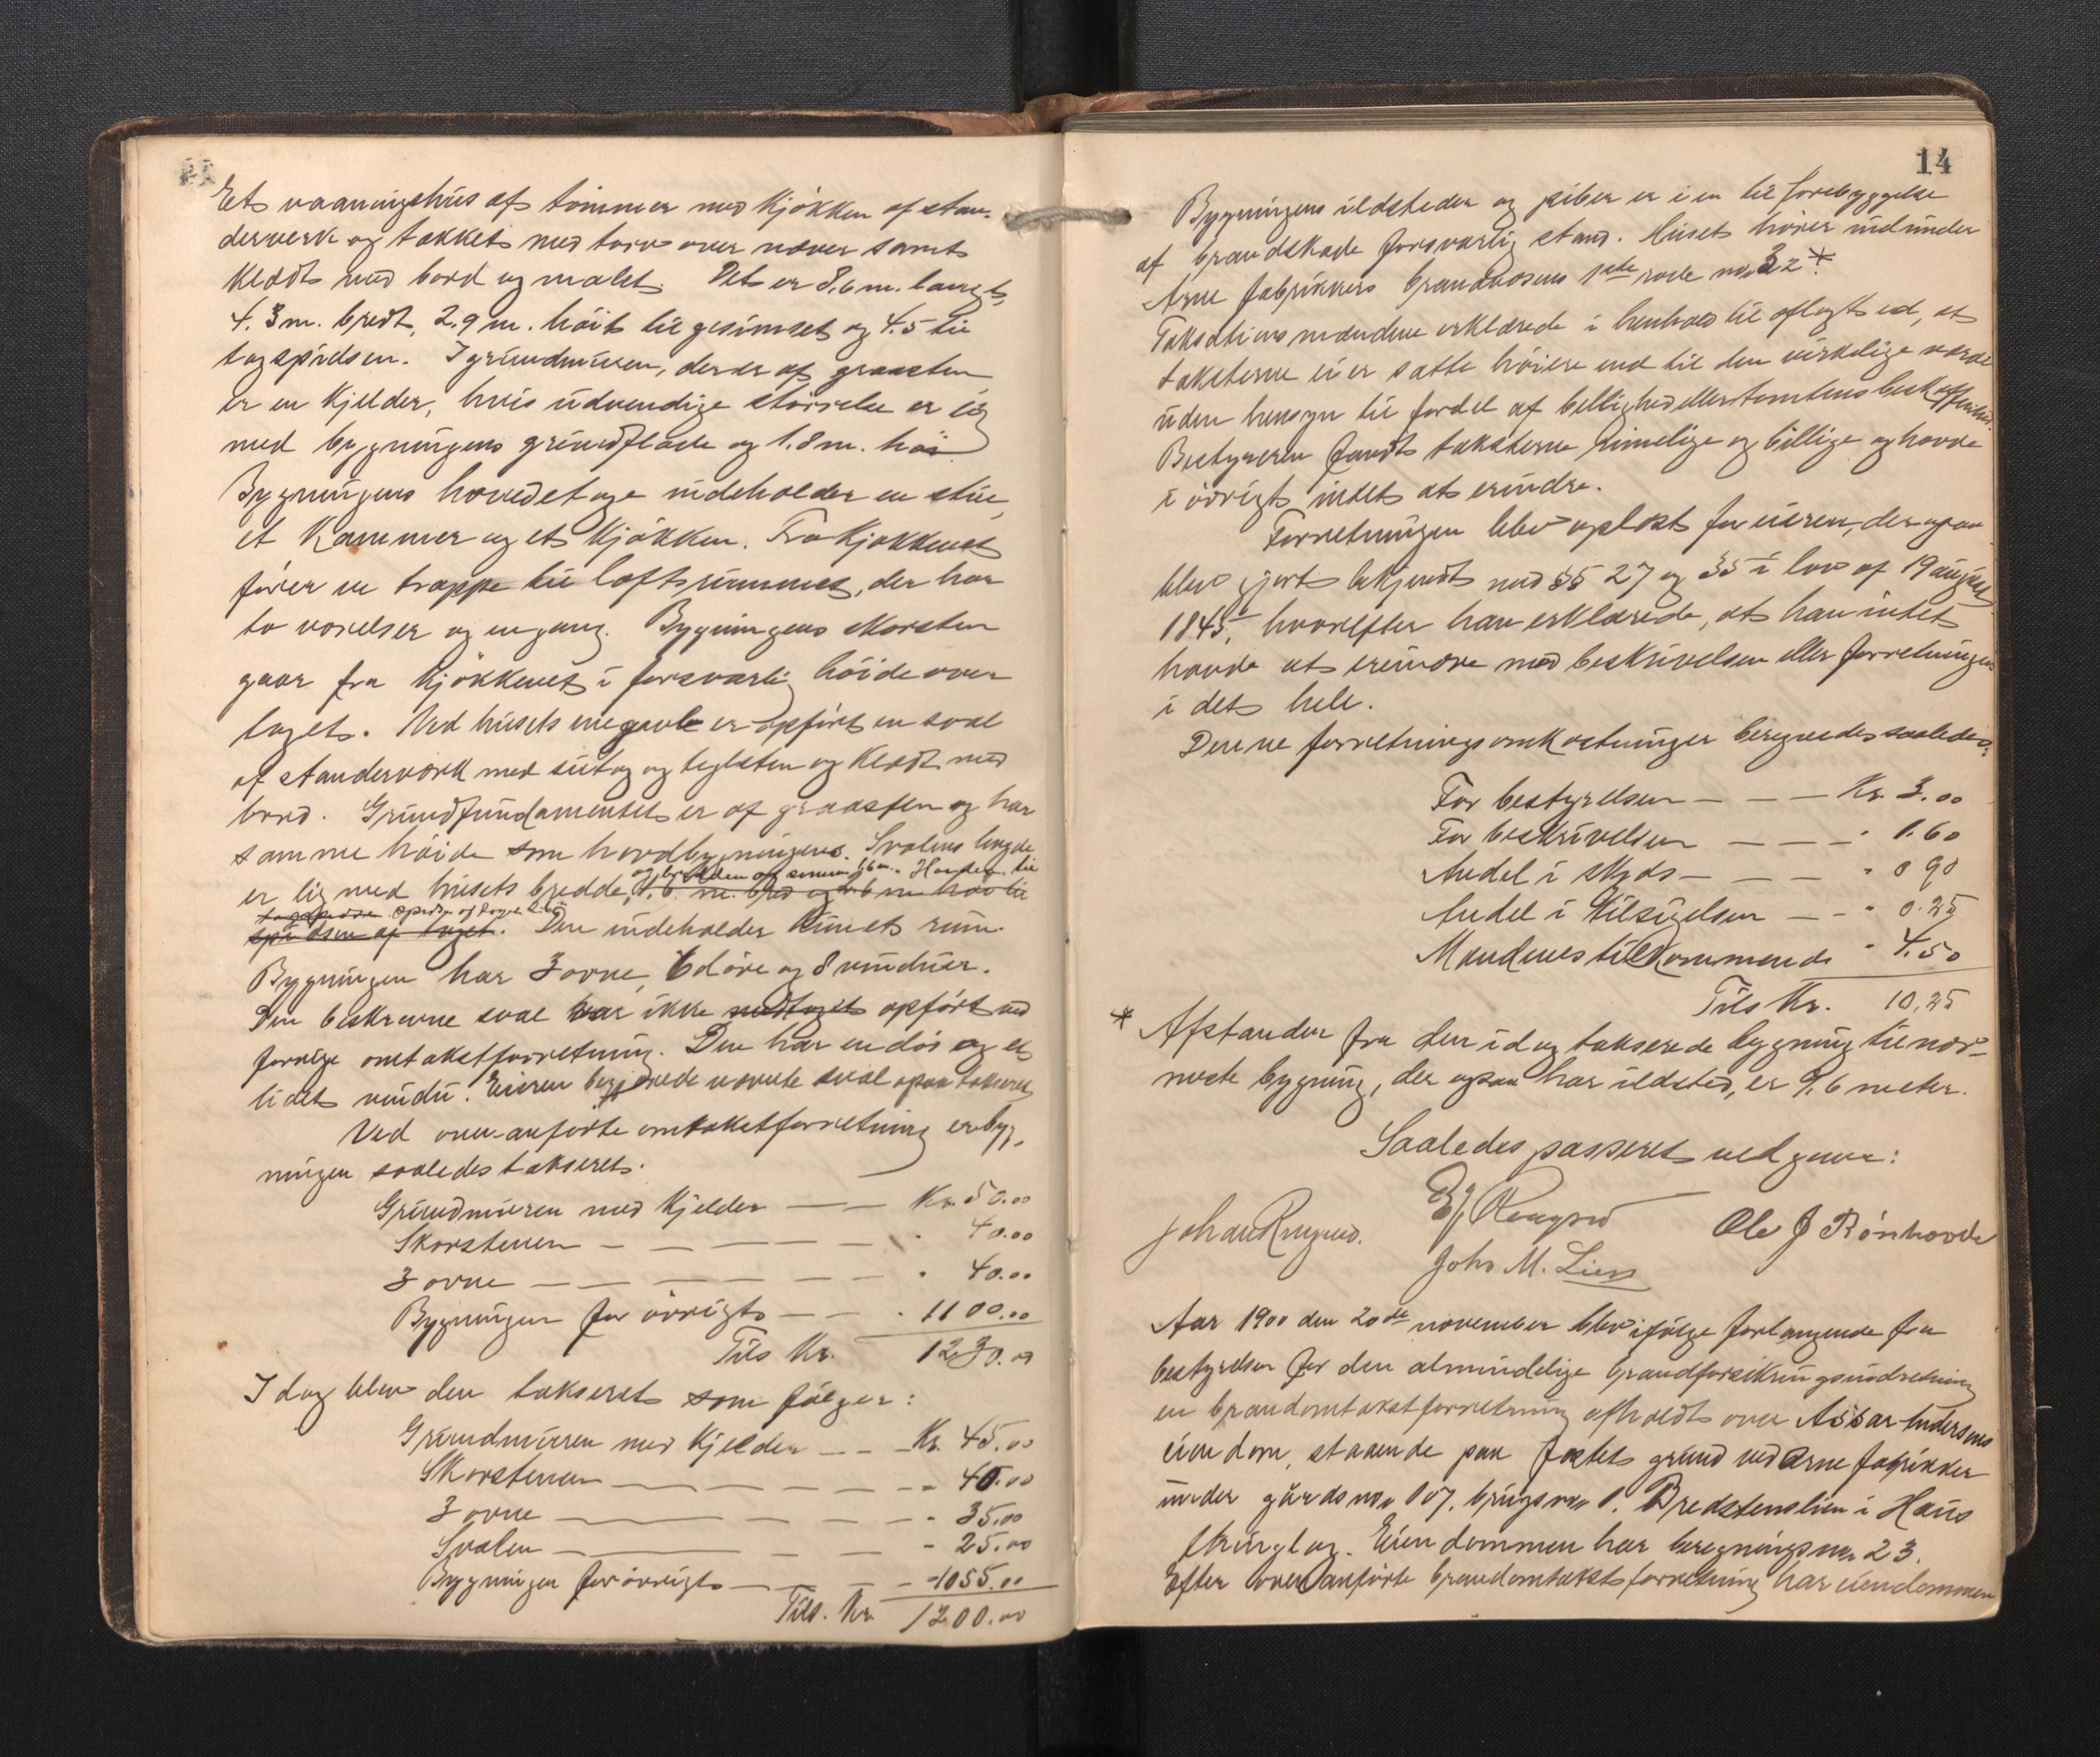 Et vaaningshus af tømmer med kjøkken af stan-
derverk og tækket med torv over næver samt
klædt med bord og malet. Det er 8.6 m. langt,
4.3 m. bredt, 2.9 m. höit til gesimset og 4.5 til
tagspidsen. I grundmuren, der er af graasten
er en kjelder, hvis udvendige störrelse er lig
med bygningens grundflade og 1.8 m. höi
Bygningens hovedetage indeholder en stue,
et kammer og et kjökken. Fra kjøkkenet
förer en trappe til loftsrummet, der har
to værelser og en gang. Bygningens skorsten
gaar fra kjökkenet i forsvarlig höide over
taget. Ved husets ene gavl er opfört en sval
af standerværk med sutag og teglsten og klædt med
bord. Grundfundamentet er af graasten og har
samme höide som hovedbygningens. Svalens længde
og bredden af samme 1,6 m. Høiden til
er lig med husets bredde, 1.6 m. bred og 2.6 m høi til
tagspidsen spidsen af taget
spidsen af taget. Den indeholder kun et rum.
Bygningen har 3 ovne, 6 döre og 8 vinduer.
Den beskrevne sval var ikke medtaget opfört ved
forrige omtakstforretning. Den har en dör og et
lidet vindu. Eieren begjærede nævnte sval ogsaa takseret
Ved ovenanförte omtakstforretning er byg-
ningen saaledes takseret.
Grundmuren med kjelder — — Kr. 50.00
Skorstenen — — — — — " 40.00
3 ovne — — — — — " 40.00
Bygningen for övrigt — — " 1100.00
Tils Kr. 1230.00
I dag blev den takseret som fölger:
Grundmuren med kjelder — — Kr. 45.00
Skorstenen — — — — - 40.00
3 ovne — — — — - 35.00
Svalen — — — — - 25.00
Bygningen forövrigt — — - 1055.00
Tils. Kr. 1200.00
14
Bygningens ildsteder og piber er i en til forebyggelse
af brandskade forsvarlig stand. Huset hörer ind under
Arne fabrikkers brandvæsens 1ste rode no 32*.
Taksationsmændene erklærede i henhold til aflagt ed, at
taksterne ei er satte höiere end til den virkelige værdi
uden hensyn til fordel af bellighed eller tomtens beskaffenhed.
Bestyreren fandt taksterne rimelige og billige og havde
i övrigt intet at erindre.
Forretningen blev oplæst for eieren, der ogsaa
blev gjort bekjendt med §§ 27 og 35 i lov af 19 august
1845, hvorefter han erklærede, at han intet
havde at erindre mod beskrivelsen eller forretningen
i det hele.
Denne forretnings omkostninger beregnedes saaledes:
For bestyrelsen — — — Kr. 3.00
For beskrivelsen — — — " 1.60
Andel i skyds — — — " 0 90
Andel i tilsigelsen — — " 0.25
Mændenes tilkommende " 4.50
Tils Kr. 10,25
* Afstanden fra den idag takserede bygning til nær-
meste bygning, der ogsaa har ildsted, er 9,6 meter.
Saaledes passeret vedgaaes:
Johs M. Lien
Ole J Rönhovde
Aar 1900 den 20de november blev ifölge forlangende fra
bestyrelsen for den almindelige brandforsikringsindretning
en brandomtakstforretning afholdt over Assar Andersens
eiendom, staaende paa fæstet grund ved Arne fabrikker
under gårds no. 107, brugs no. 1. Bredstenslien i Haus
thinglag. Eiendommen har beregnings no 23.
Efter ovenanförte brandomtakstforretning har eiendommen